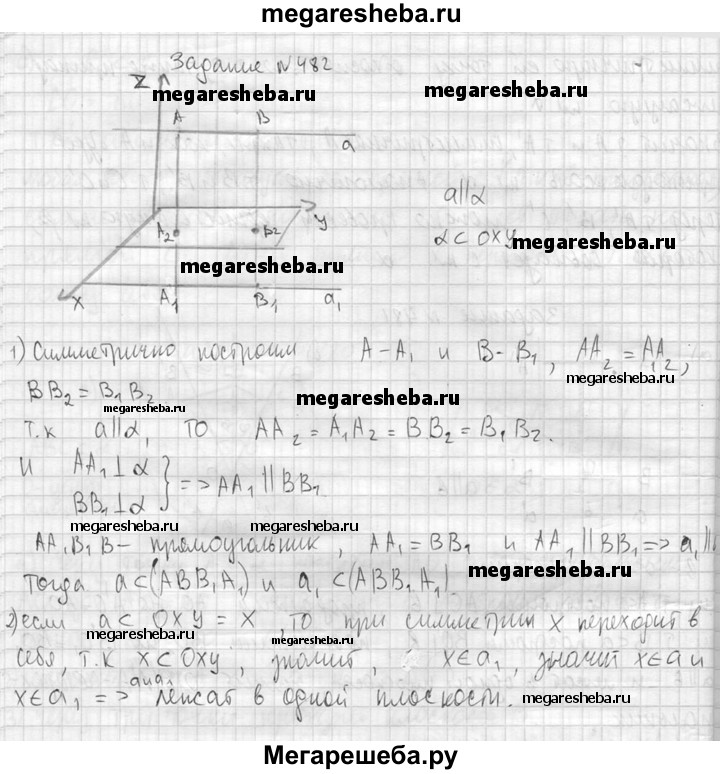 megaresheba.ru
Задание №482
Z
megaresheba.ru
A B
a
a||α
y
A₂ B₂
α⊂OXY megaresheba.ru
megaresheba.ru
X A₁ B₁ a₁
1) Симметрично построим A-A₁ и B-B₁, AA₂=A₁A₂;
megaresheba.ru
BB₂=B₁B₂
megaresheba.ru
megaresheba.ru
т.к a||α, то AA₂=A₁A₂=BB₂=B₁B₂.
и AA₁⊥α
BB₁⊥α } => AA₁||BB₁
megaresheba.ru
megaresheba.ru
AA₁B₁B - прямоугольник, AA₁=BB₁ и AA₁||BB₁=>a₁||
тогда a⊂(ABB₁A₁) и a₁⊂(ABB₁A₁).
megaresheba.ru
2) если a⊂ OXY = X, то при симметрии X переходит в
megaresheba.ru
megaresheba.ru
себя, т.к X⊂OXY, значит, X∈a₁, значит X∈a и
X∈a₁ => a и a₁ лежат в одной плоскости.
megaresheba.ru
Мегарешеба.ру